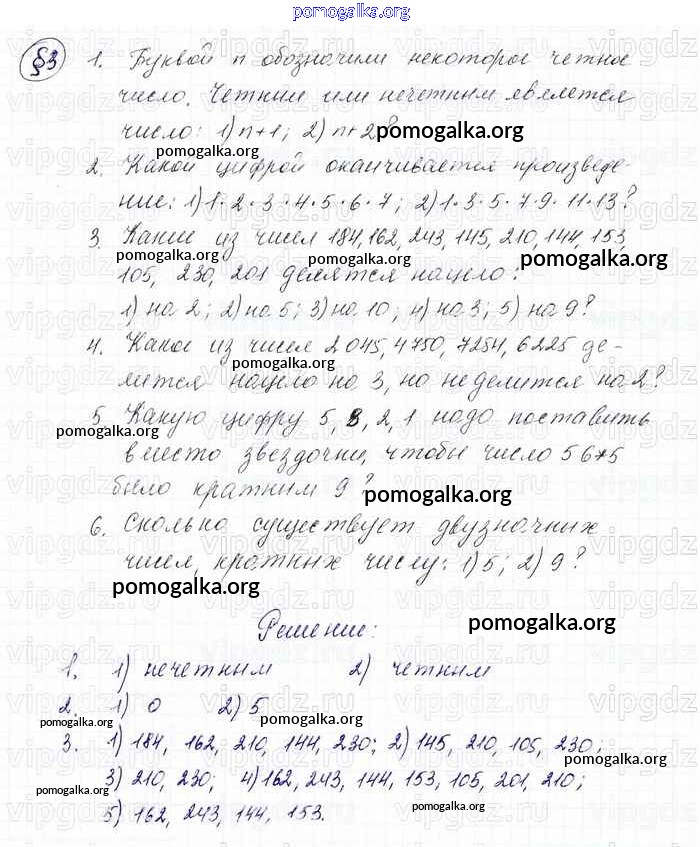 pomogalka.org
§3 1. Буквой n обозначили некоторое четное
число. Четным или нечетным является
число: 1) n+1; 2) n+2? pomogalka.org
pomogalka.org
2. Какой цифрой оканчивается произведе-
ние: 1) 1·2·3·4·5·6·7; 2) 1·3·5·7·9·11·13?
3. Какие из чисел 184, 162, 243, 145, 210, 144, 153,
105, 230, 201 делятся нацело: pomogalka.org
1) на 2; 2) на 5; 3) на 10; 4) на 3; 5) на 9?
4. Какое из чисел 2045, 4750, 7254, 6225 де-
pomogalka.org
лится нацело на 3, но не делится на 2?
5. Какую цифру 5, 8, 2, 1 надо поставить
pomogalka.org
вместо звездочки, чтобы число 56*5
было кратным 9? pomogalka.org
6. Сколько существует двузначных
чисел, кратных числу: 1) 5; 2) 9?
pomogalka.org
Решение: pomogalka.org
1. 1) нечетным 2) четным
2. 1) 0 2) 5
pomogalka.org pomogalka.org
3. 1) 184, 162, 210, 144, 230; 2) 145, 210, 105, 230;
pomogalka.org
3) 210, 230; 4) 162, 243, 144, 153, 105, 201, 210;
pomogalka.org
5) 162, 243, 144, 153. pomogalka.org